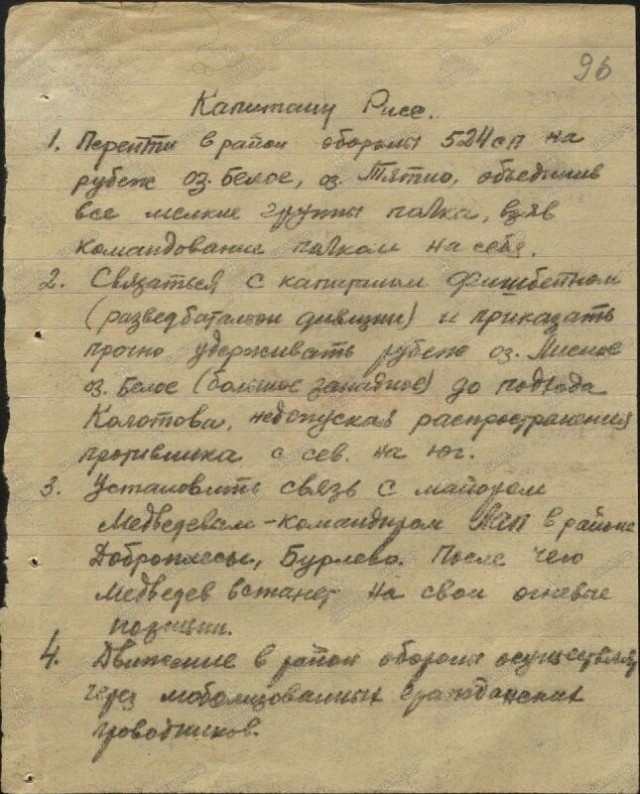 96
Капитану Рисе.
1. Перейти в район обороны 524 сп на
рубеж оз. Белое, оз. Тятно, объединив
все мелкие группы полка, взяв
командование полком на себя.
2. Связаться с капитаном
(разведбатальон дивизии) и приказать
прочно удерживать рубеж оз.
оз. Белое (большое западное) до подхода
Колотова, недопуская распространения
противника с сев. на юг.
3. Установить связь с майором
Медведевам - командиром в районе
Доброплесы, Бурлево. После чего
Медведев встанет на свои огневые
позиции.
4. Движение в район обороны
через мобилизованных гражданских
проводников.